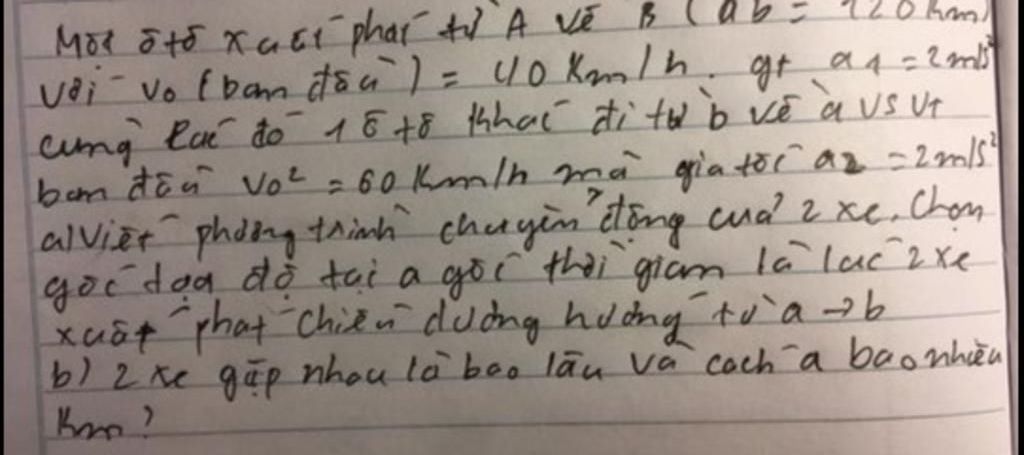 Một ôtô xuất phát từ A về B ( ab = 120 km)
với vo (ban đầu) = 40 Km/h. gt a1 = 2m/s²
cùng lúc đó 1 ô tô khác đi từ b về a vs vt
ban đầu vo² = 60 Km/h mà gia tốc a2 = 2m/s²
a) Viết phương trình chuyển động của 2 xe. Chọn
gốc tọa độ tại a gốc thời gian là lúc 2 xe
xuất phát chiều dương hướng từ a → b
b) 2 xe gặp nhau là bao lâu và cách a bao nhiêu
km?